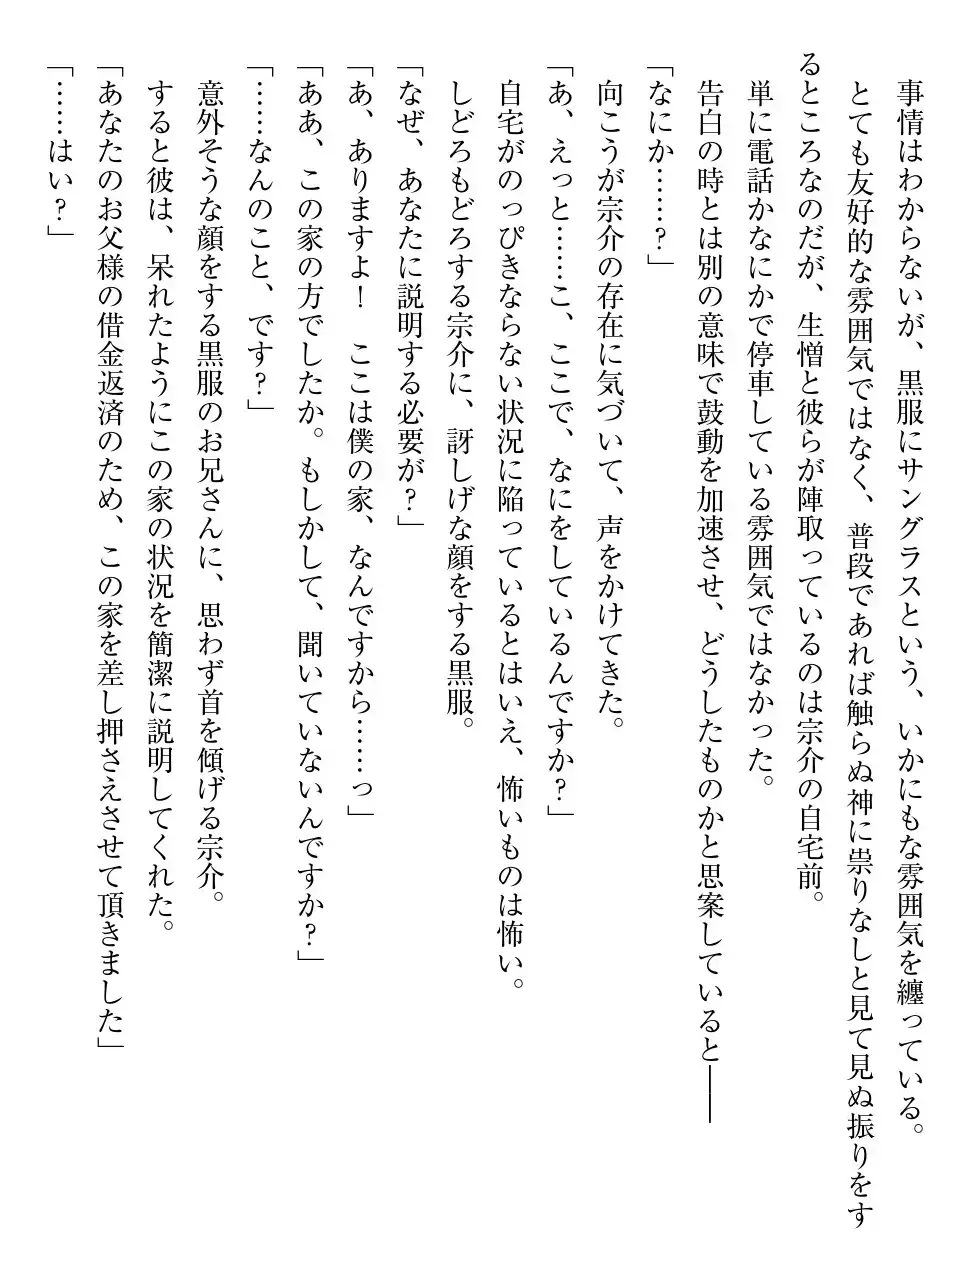 事情はわからないが、黒服にサングラスという、いかにもな雰囲気を纏っている。
とても友好的な雰囲気ではなく、普段であれば触らぬ神に祟りなしと見て見ぬ振りをす
るところなのだが、生憎と彼らが陣取っているのは宗介の自宅前。
単に電話かなにかで停車している雰囲気ではなかった。
告白の時とは別の意味で鼓動を加速させ、どうしたものかと思案していると――
「なにか……？」
向こうが宗介の存在に気づいて、声をかけてきた。
「あ、えっと……こ、ここで、なにをしているんですか？」
自宅がのっぴきならない状況に陥っているとはいえ、怖いものは怖い。
しどろもどろする宗介に、訝しげな顔をする黒服。
「なぜ、あなたに説明する必要が？」
「あ、ありますよ！　ここは僕の家、なんですから……っ」
「ああ、この家の方でしたか。もしかして、聞いていないんですか？」
「……なんのこと、です？」
意外そうな顔をする黒服のお兄さんに、思わず首を傾げる宗介。
すると彼は、呆れたようにこの家の状況を簡潔に説明してくれた。
「あなたのお父様の借金返済のため、この家を差し押さえさせて頂きました」
「……はい？」